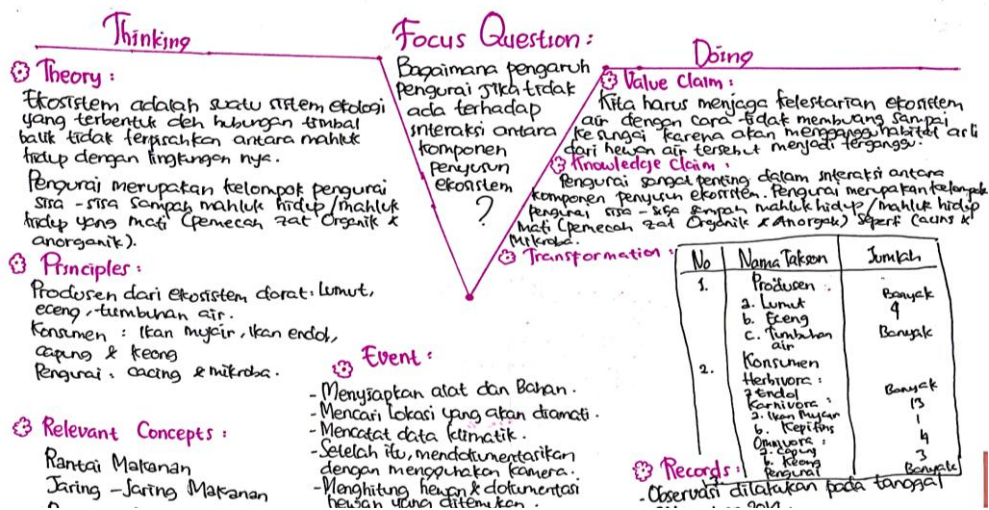 Thinking
Theory :
Ekosistem adalah suatu sistem ekologi
yang terbentuk oleh hubungan timbal
balik tidak terpisahkan antara mahluk
hidup dengan lingkungan nya.
Pengurai merupakan kelompok pengurai
sisa - sisa sampah mahluk hidup / mahluk
hidup yang mati (pemecah zat Organik &
anorganik).
Principles :
Produsen dari ekosistem darat : lumut,
eceng, tumbuhan air.
Konsumen : Ikan mujair, Ikan endol,
capung & keong
Pengurai : cacing & mikroba.
Relevant Concepts :
Rantai Makanan
Jaring - Jaring Makanan
Focus Question :
Bagaimana pengaruh
pengurai jika tidak
ada terhadap
interaksi antara
komponen
penyusun
ekosistem
?
Event :
- Menyiapkan alat dan Bahan.
- Mencari lokasi yang akan diamati.
- Mencatat data klimatik.
- Setelah itu, mendokumentasikan
dengan menggunakan kamera.
- Menghitung hewan & dokumentasi
hewan yang ditemukan.
Doing
Value Claim :
Kita harus menjaga kelestarian ekosistem
air dengan cara tidak membuang sampai
ke sungai karena akan mengganggu habitat asli
dari hewan air tersebut menjadi terganggu.
Knowledge Claim :
Pengurai sangat penting dalam interaksi antara
komponen penyusun ekosistem. Pengurai merupakan kelompok
pengurai sisa - sisa sampah mahluk hidup / mahluk hidup
Mati (pemecah zat Organik & Anorgak) seperti Cacing &
Mikroba.
Transformation :
No Nama Takson Jumlah
1. Produsen :
a. Lumut Banyak
b. Eceng 4
c. Tumbuhan Banyak
air
2. Konsumen
Herbivora :
Endol Banyak
Karnivora : 13
a. Ikan Mujair 1
b. Kepiting
Omnivora : 4
a. Capung 3
b. Keong
Pengurai Banyak
Records :
- Observasi dilakukan pada tanggal